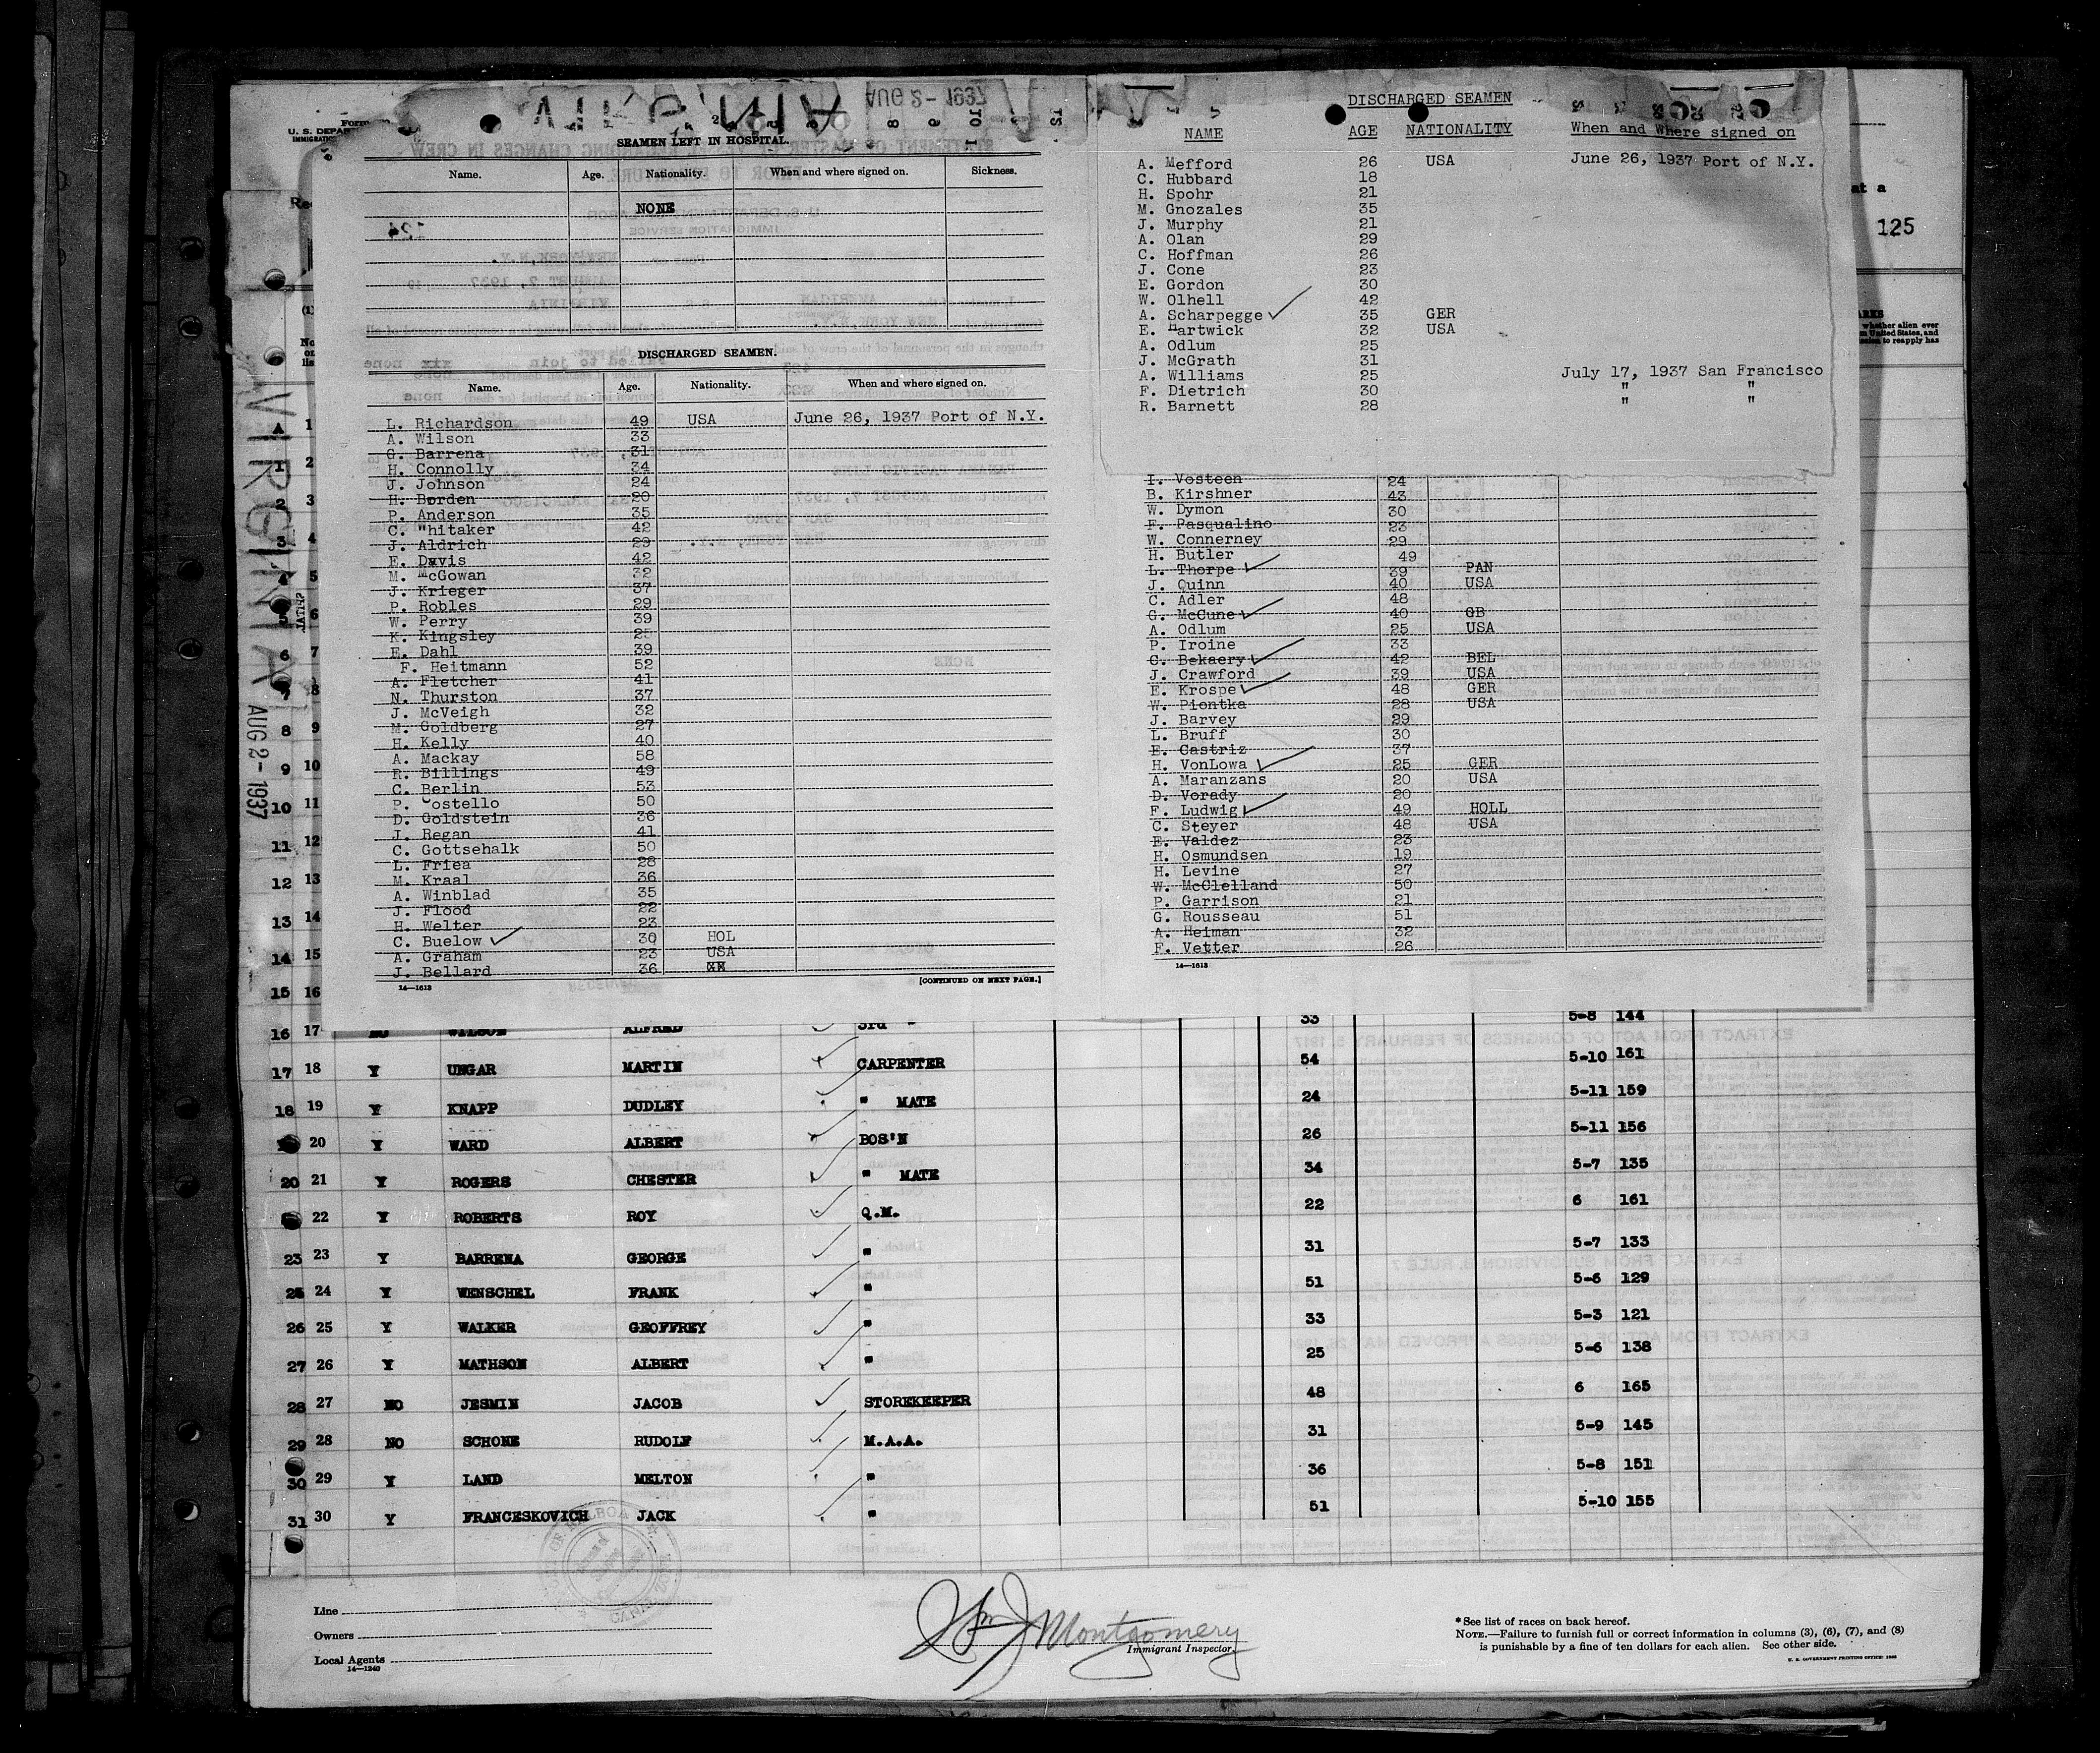 VIRGINIA
AUG 2 - 1937
SEAMEN LEFT IN HOSPITAL.
Name. Age. Nationality. When and where signed on. Sickness.
NONE
DISCHARGED SEAMEN.
Name. Age. Nationality. When and where signed on.
L. Richardson 49 USA June 26, 1937 Port of N.Y.
A. Wilson 33
G. Barrena 31
H. Connolly 34
J. Johnson 24
H. Borden 20
P. Anderson 35
C. Whitaker 42
J. Aldrich 29
E. Davis 42
M. McGowan 32
J. Krieger 37
P. Robles 29
W. Perry 39
K. Kingsley 25
E. Dahl 39
F. Heitmann 52
A. Fletcher 41
N. Thurston 37
J. McVeigh 32
M. Goldberg 27
H. Kelly 40
A. Mackay 58
R. Billings 49
C. Berlin 53
P. Costello 50
D. Goldstein 36
J. Regan 41
C. Gottsehalk 50
L. Friea 28
M. Kraal 36
A. Winblad 35
J. Flood 22
H. Welter 23
C. Buelow ✓ 30 HOL
A. Graham 23 USA
J. Bellard 36 XX
14—1613 [CONTINUED ON NEXT PAGE.]
DISCHARGED SEAMEN
NAME AGE NATIONALITY When and Where signed on
A. Mefford 26 USA June 26, 1937 Port of N.Y.
C. Hubbard 18
H. Spohr 21
M. Gnozales 35
J. Murphy 21
A. Olan 29
C. Hoffman 26
J. Cone 23
E. Gordon 30
W. Olhell 42
A. Scharpegge ✓ 35 GER
E. Hartwick 32 USA
A. Odlum 25
J. McGrath 31
A. Williams 25 July 17, 1937 San Francisco
F. Dietrich 30 " "
R. Barnett 28 " "
I. Vosteen 24
B. Kirshner 43
W. Dymon 30
F. Pasqualino 23
W. Connerney 29
H. Butler 49
L. Thorpe ✓ 39 PAN
J. Quinn 40 USA
C. Adler 48
G. McCune ✓ 40 GB
A. Odlum 25 USA
P. Iroine 33
C. Bekaery ✓ 42 BEL
J. Crawford 39 USA
E. Krospe ✓ 48 GER
W. Piontka 28 USA
J. Barvey 29
L. Bruff 30
E. Castriz 37
H. VonLowa ✓ 25 GER
A. Maranzans 20 USA
D. Vorady 20
F. Ludwig ✓ 49 HOLL
C. Steyer 48 USA
E. Valdez 23
H. Osmundsen 19
H. Levine 27
W. McClelland 50
P. Garrison 21
G. Rousseau 51
A. Heiman 32
F. Vetter 26
14—1613
125
VIRGINIA AUG 2 - 1937
16 17 NO WILSON ALFRED ✓ 3rd " 33 5-8 144
17 18 Y UNGAR MARTIN ✓ CARPENTER 54 5-10 161
18 19 Y KNAPP DUDLEY ✓ " MATE 24 5-11 159
20 Y WARD ALBERT ✓ BOS'N 26 5-11 156
20 21 Y ROGERS CHESTER ✓ " MATE 34 5-7 135
22 Y ROBERTS ROY ✓ Q.M. 22 6 161
23 23 Y BARRENA GEORGE ✓ " 31 5-7 133
25 24 Y WENSCHEL FRANK ✓ " 51 5-6 129
26 25 Y WALKER GEOFFREY ✓ " 33 5-3 121
27 26 Y MATHSON ALBERT ✓ " 25 5-6 138
28 27 NO JESMIN JACOB ✓ STOREKEEPER 48 6 165
29 28 NO SCHONE RUDOLF ✓ M.A.A. 31 5-9 145
30 29 Y LAND MELTON ✓ " 36 5-8 151
31 30 Y FRANCESKOVICH JACK ✓ " 51 5-10 155
Line
Owners
Local Agents
14—1240
Wm J Montgomery
Immigrant Inspector.
* See list of races on back hereof.
NOTE.—Failure to furnish full or correct information in columns (3), (6), (7), and (8)
is punishable by a fine of ten dollars for each alien. See other side.
U. S. GOVERNMENT PRINTING OFFICE: